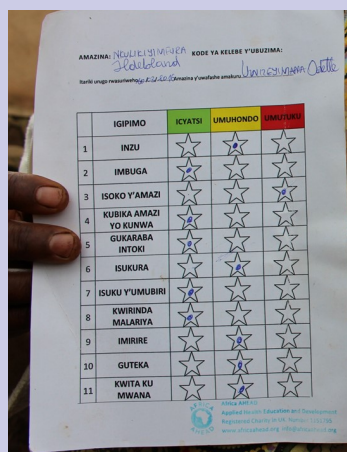 AMAZINA: NKULIKIYIMFURA KODE YA KELEBE Y'UBUZIMA:
Ildebland
Itariki urugo rwasuriweho Amazina y'uwafashe amakuru UWIREYIMANA Odette
IGIPIMO ICYATSI UMUHONDO UMUTUKU
1 INZU
2 IMBUGA
3 ISOKO Y'AMAZI
4 KUBIKA AMAZI YO KUNWA
5 GUKARABA INTOKI
6 ISUKURA
7 ISUKU Y'UMUBIRI
8 KWIRINDA MALARIYA
9 IMIRIRE
10 GUTEKA
11 KWITA KU MWANA
Africa AHEAD
Applied Health Education and Development
Registered Charity in UK: Number:
www.africaahead.org info@africaahead.org